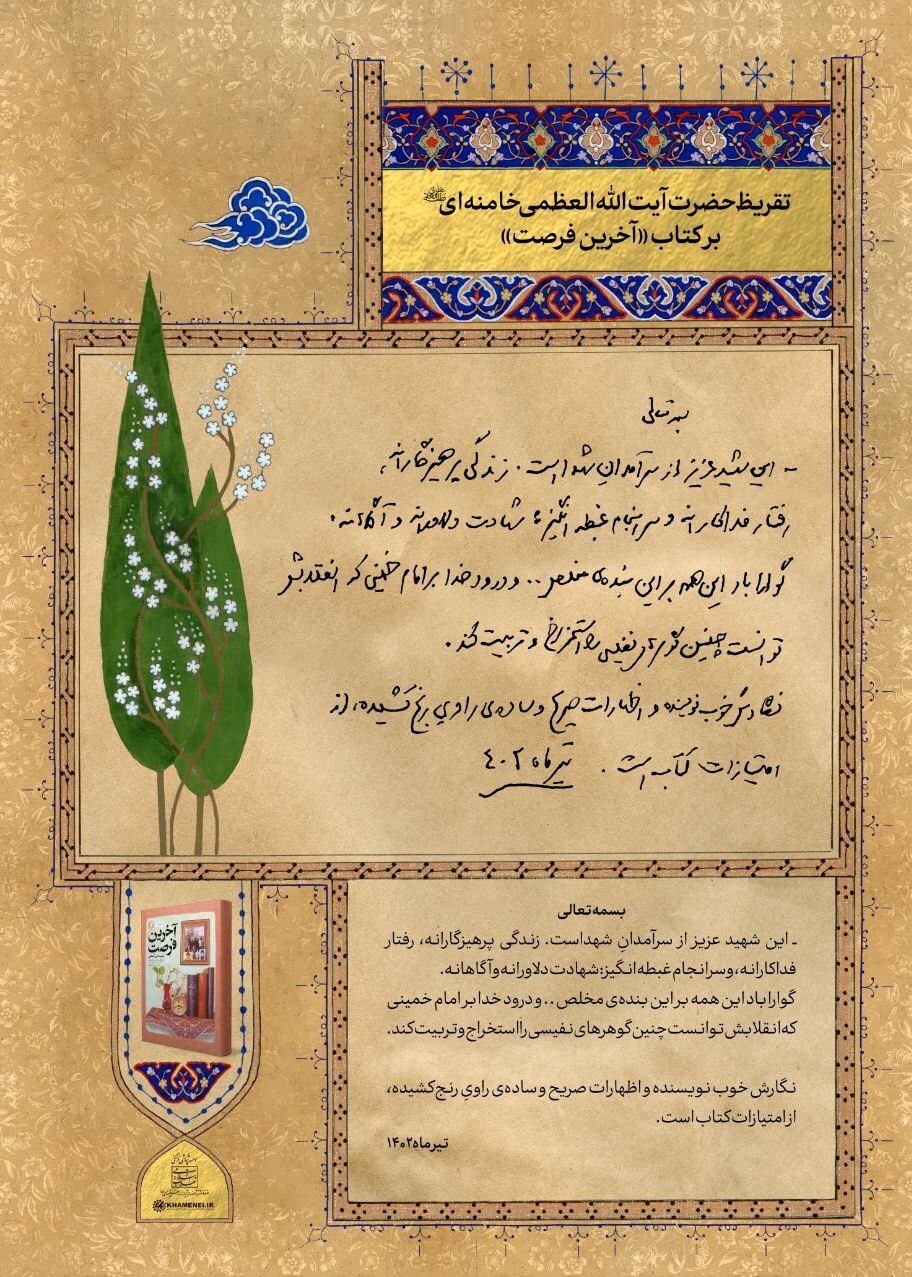 تقریظ حضرت آیت الله العظمی خامنه‌ای
بر کتاب «آخرین فرصت»
بسمه تعالی
- این شهید عزیز از سرآمدانِ شهدا است. زندگی پرهیزگارانه،
رفتار فداکارانه و سرانجام غبطه انگیز؛ شهادت دلاورانه و آگاهانه.
گوارا باد این همه بر این بنده‌ی مخلص .. و درود خدا بر امام خمینی که انقلابش
توانست چنین گوهرهای نفیسی را استخراج و تربیت کند.
نگارش خوب نویسنده و اظهارات صریح و ساده‌ی راویِ رنج کشیده، از
امتیازات کتاب است. تیرماه ۴۰۲
بسمه تعالی
ـ این شهید عزیز از سرآمدانِ شهداست. زندگی پرهیزگارانه، رفتار
فداکارانه، و سرانجام غبطه انگیز: شهادت دلاورانه و آگاهانه.
گوارا باد این همه بر این بنده‌ی مخلص .. و درود خدا بر امام خمینی
که انقلابش توانست چنین گوهرهای نفیسی را استخراج و تربیت کند.
نگارش خوب نویسنده و اظهارات صریح و ساده‌ی راویِ رنج کشیده،
از امتیازات کتاب است.
تیرماه ۱۴۰۲
آخرین
فرصت
KHAMENEI.IR